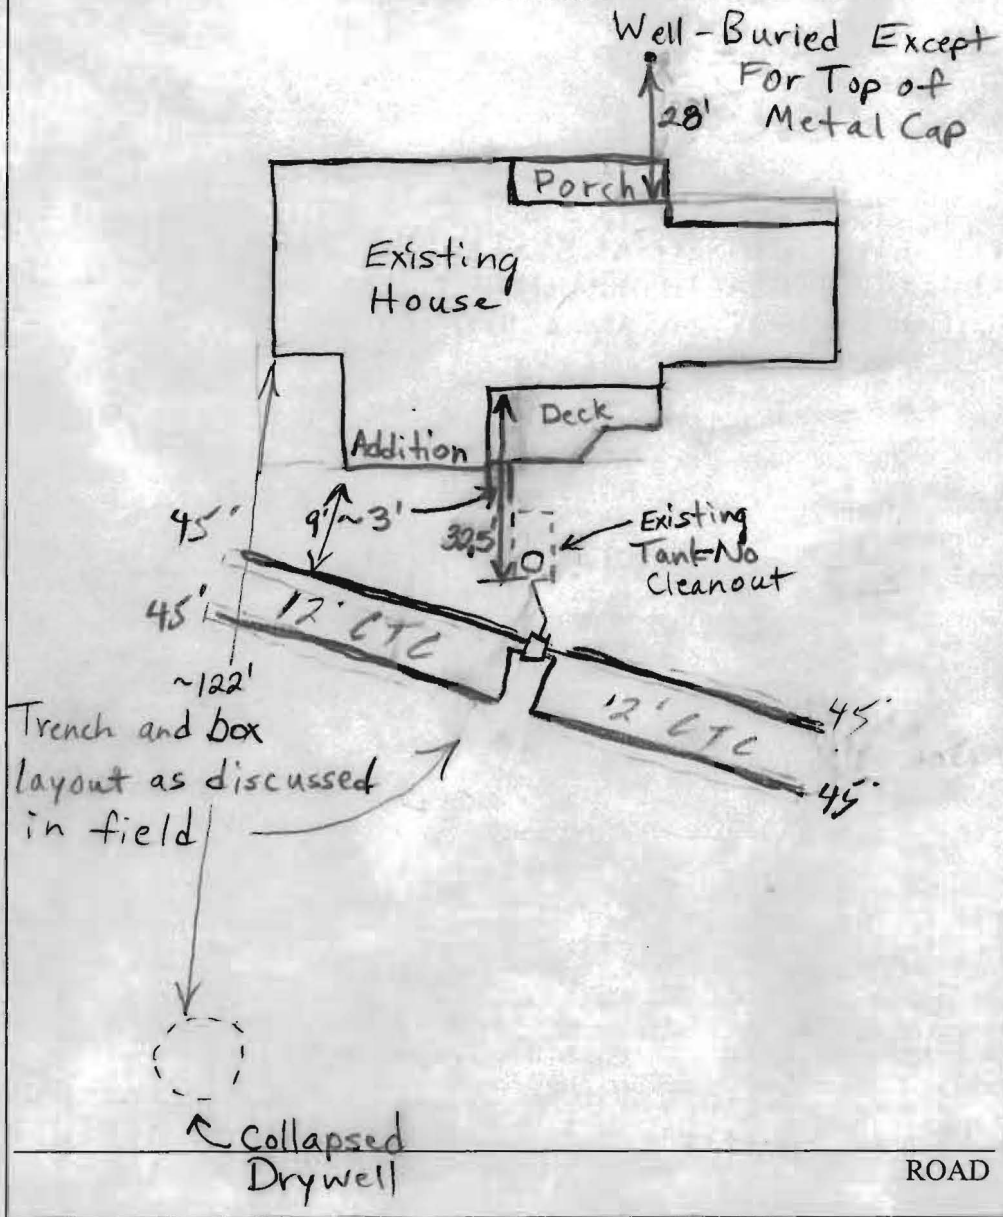 Well-Buried Except
For Top of
Metal Cap
28'
Porch
Existing
House
Deck
Addition
45'
9'
~3'
32.5'
Existing
Tank-No
Cleanout
45'
12' CTC
~122'
12' CTC
45'
45'
Trench and box
layout as discussed
in field
Collapsed
Drywell
ROAD